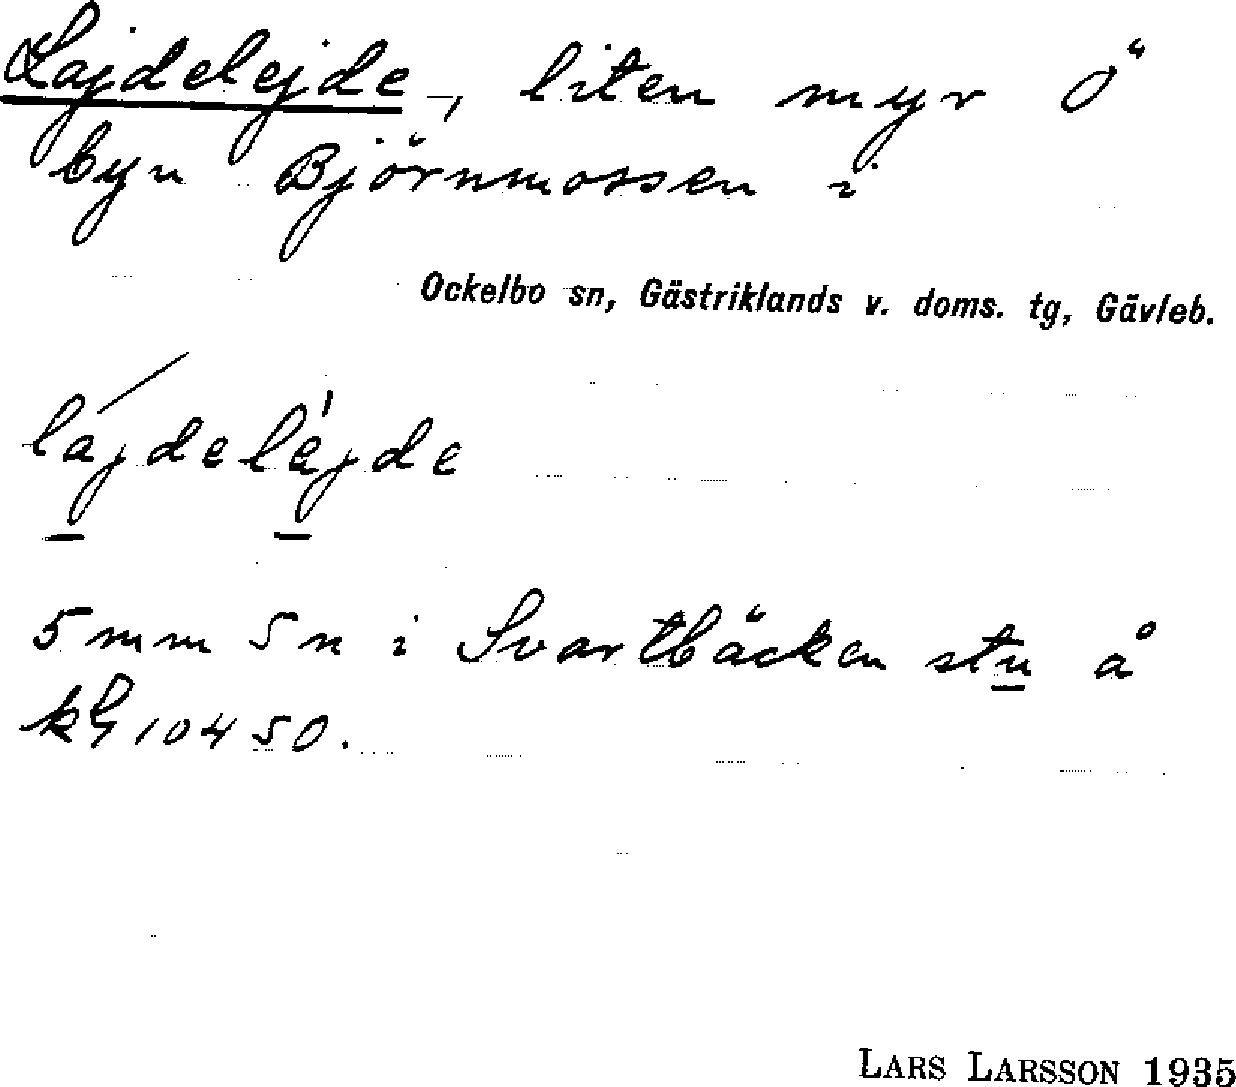 Lajdelejde, liten myr Ö
byn Björnmossen i
Ockelbo sn, Gästriklands v. doms. tg, Gävleb.
lajdeléjde
5 mm S n i Svartbäcken stu å
10450.
LARS LARSSON 1935